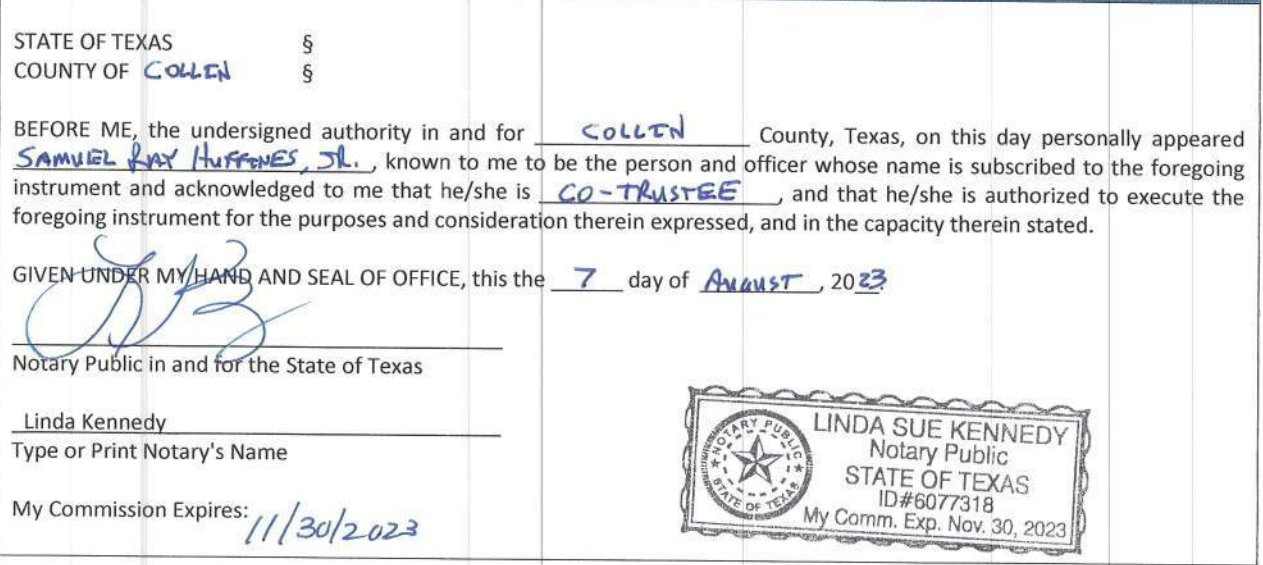 STATE OF TEXAS §
COUNTY OF COLLIN §
BEFORE ME, the undersigned authority in and for COLLIN County, Texas, on this day personally appeared
SAMUEL RAY HUFFINES, JR., known to me to be the person and officer whose name is subscribed to the foregoing
instrument and acknowledged to me that he/she is CO-TRUSTEE, and that he/she is authorized to execute the
foregoing instrument for the purposes and consideration therein expressed, and in the capacity therein stated.
GIVEN UNDER MY HAND AND SEAL OF OFFICE, this the 7 day of AUGUST, 2023.
Notary Public in and for the State of Texas
Linda Kennedy
Type or Print Notary's Name
My Commission Expires: 11/30/2023
NOTARY PUBLIC
STATE OF TEXAS
LINDA SUE KENNEDY
Notary Public
STATE OF TEXAS
ID#6077318
My Comm. Exp. Nov. 30, 2023